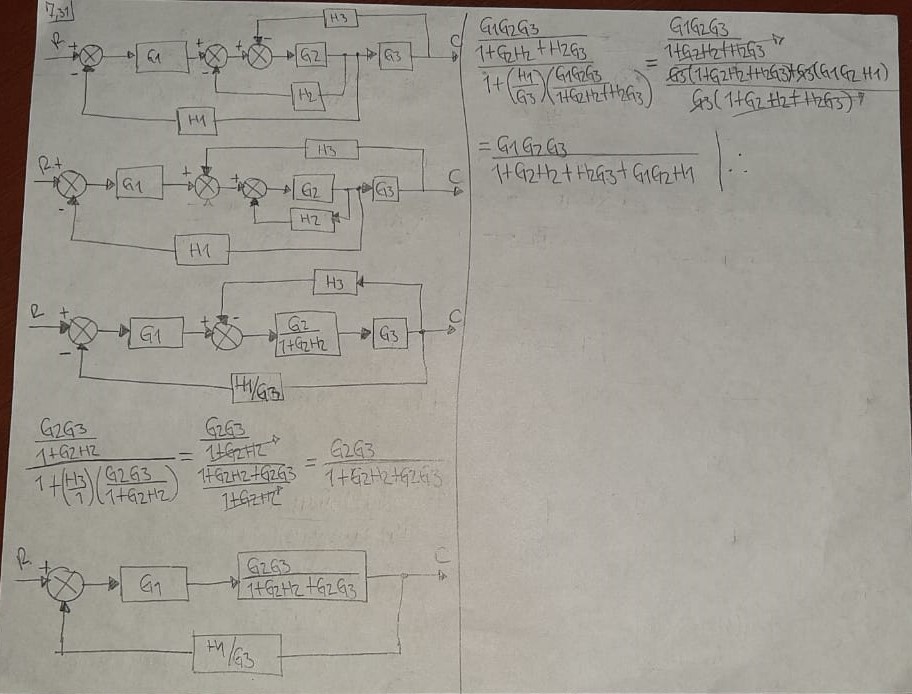 7,31
R + - G1 + - + - G2 G3 C
H3
H2
H1
R + - G1 + - + - G2 G3 C
H3
H2
H1
R + - G1 + - G2/1+G2H2 G3 C
H3
H1/G3
G2G3/1+G2H2 / 1+(H3/1)(G2G3/1+G2H2) = G2G3/1+G2H2 / 1+G2H2+G2G3/1+G2H2 = G2G3/1+G2H2+G2G3
R + G1 G2G3/1+G2H2+G2G3 C
H1/G3
G1G2G3/1+G2H2+H2G3 / 1+(H1/G3)(G1G2G3/1+G2H2+H2G3) = G1G2G3/1+G2H2+H2G3 / G3(1+G2H2+H2G3)+G3(G1G2H1)/G3(1+G2H2+H2G3)
= G1G2G3/1+G2H2+H2G3+G1G2H1 ∴